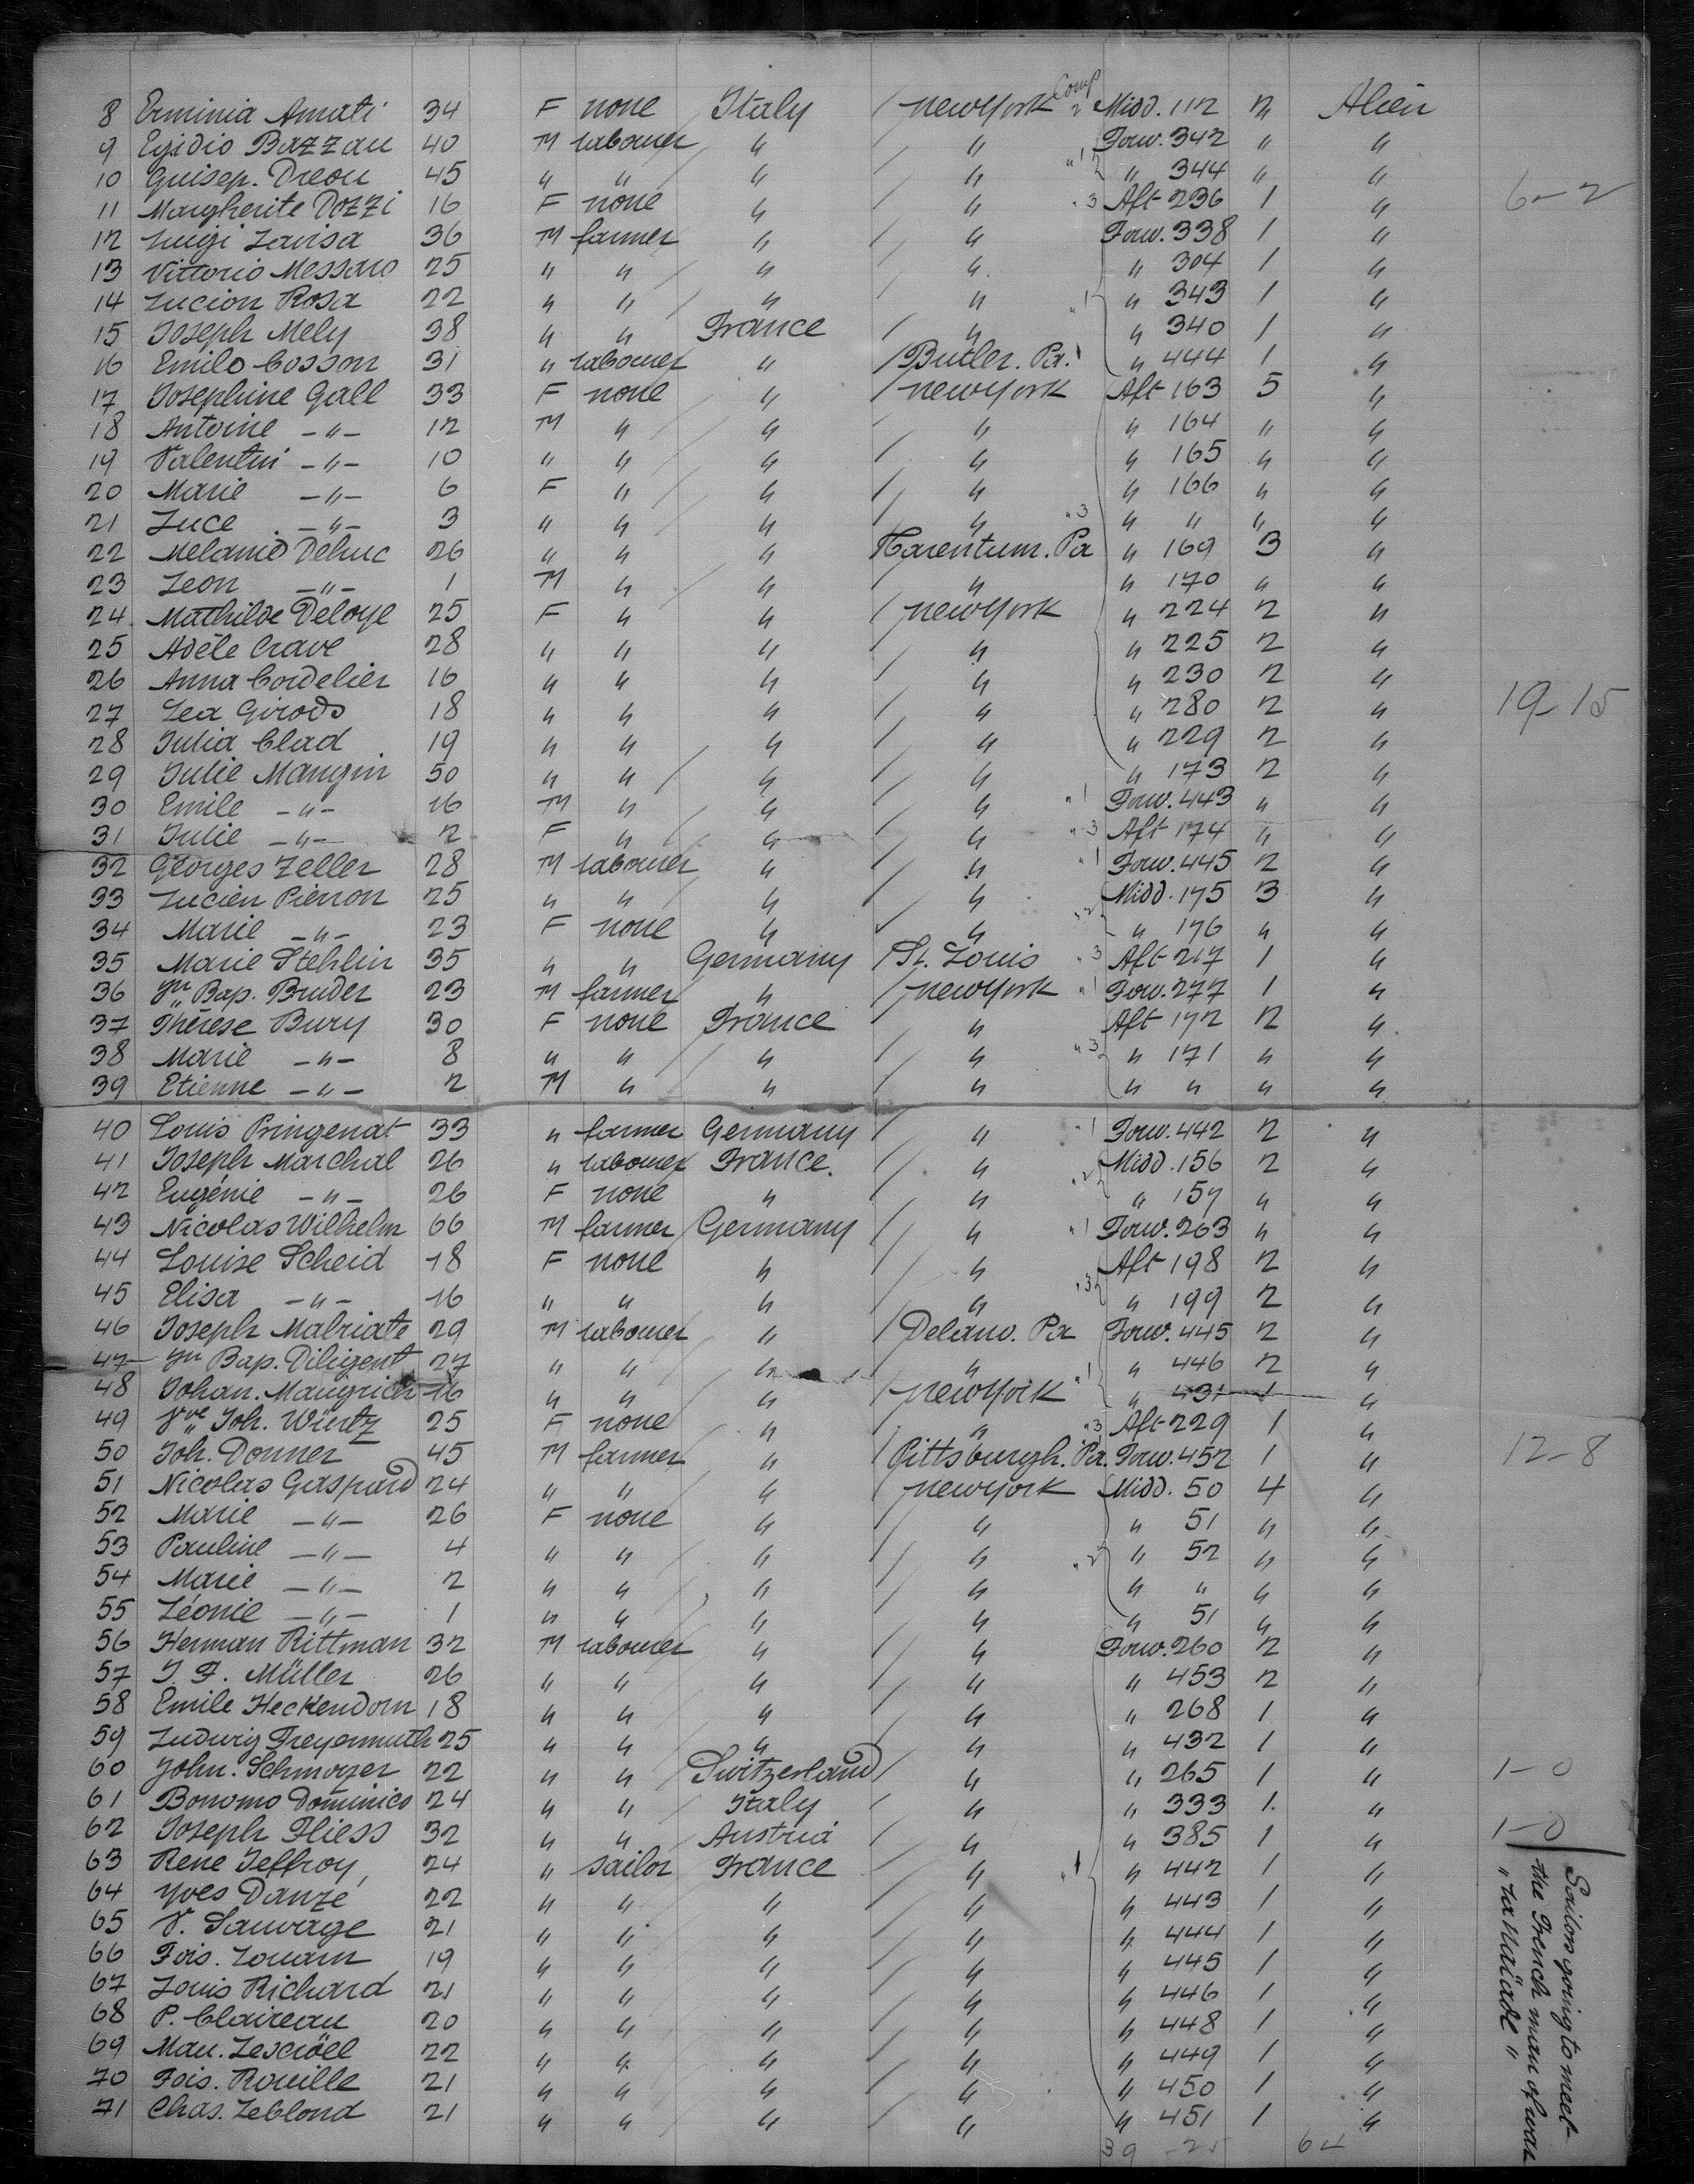 8 Erminia Amati 34 F none Italy / newyork Comp 2 Midd. 112 2 Alien
9 Egidio Bazzan 40 M labourer " / " Forw. 342 " "
10 Guisep. Dreon 45 " " " / " " 1 " 344 " "
11 Margherite Dozzi 16 F none " / " " 3 Aft 236 1 " 6-2
12 Luigi Lavisa 36 M farmer " / " Forw. 338 1 "
13 Vittorio Messaro 25 " " " / " " 304 1 "
14 Lucion Rosa 22 " " " / " " 1 " 343 1 "
15 Joseph Mely 38 " " France / " " 340 1 "
16 Emile Cosson 31 " labourer " / Butler. Pa. " 444 1 "
17 Josephine Gall 33 F none " / newyork Aft 163 5 "
18 Antoine -"- 12 M " " / " " 164 " "
19 Valentin -"- 10 " " " / " " 165 " "
20 Marie -"- 6 F " " / " " 166 " "
21 Luce -"- 3 " " " / " " 3 " " " "
22 Melanie Deluc 26 " " " Tarentum. Pa " 169 3 "
23 Leon -"- 1 M " " / " " 170 " "
24 Mathilde Deloye 25 F " " / newyork " 224 2 "
25 Adèle Crave 28 " " " / " " 225 2 "
26 Anna Cordelier 16 " " " / " " 230 2 "
27 Lea Girods 18 " " " / " " 280 2 " 19-15
28 Julia Clad 19 " " " / " " 229 2 "
29 Julie Mangin 50 " " " / " " 173 2 "
30 Emile -"- 16 M " " / " " 1 Forw. 443 " "
31 Julie -"- 2 F " " / " " 3 Aft 174 " "
32 Georges Zeller 28 M labourer " / " " 1 Forw. 445 2 "
33 Lucien Pierron 25 " " " / " Midd. 175 3 "
34 Marie -"- 23 F none " / " " 2 " 176 " "
35 Marie Stehlin 35 " " Germany / St. Louis " 3 Aft 217 1 "
36 Jn Bap. Bruder 23 M farmer " / newyork " 1 Forw. 277 1 "
37 Thérèse Bury 30 F none France " Aft 172 2 "
38 Marie -"- 8 " " " / " " 3 " 171 " "
39 Etienne -"- 2 M " " / " " " " "
40 Louis Pringenat 33 " farmer Germany / " " 1 Forw. 442 2 "
41 Joseph Marchal 26 " labourer France. / " Midd. 156 2 "
42 Eugénie -"- 26 F none " / " " 2 " 157 " "
43 Nicolas Wilhelm 66 M farmer Germany / " " 1 Forw. 263 " "
44 Louise Scheid 18 F none " / " Aft 198 2 "
45 Elisa -"- 16 " " " / " " 3 " 199 2 "
46 Joseph Malriate 29 M labourer " / Delano. Pa Forw. 445 2 "
47 Jn Bap. Diligent 27 " " " / " " 446 2 "
48 Johan. Maugrich 16 " " " / newyork " 1 " 431 1 "
49 Vve Joh. Wiertz 25 F none " / " " 3 Aft 229 1 "
50 Joh. Donner 45 M farmer " / Pittsburgh. Pa. Forw. 452 1 " 12-8
51 Nicolas Gaspard 24 " " " / newyork Midd. 50 4 "
52 Marie -"- 26 F none " / " " 51 " "
53 Pauline -"- 4 " " " / " " 2 " 52 " "
54 Marie -"- 2 " " " / " " " " "
55 Léonie -"- 1 " " " / " " 51 " "
56 Herman Rittman 32 M labourer " / " Forw. 260 2 "
57 J. F. Müller 26 " " " / " " 453 2 "
58 Emile Heckendorn 18 " " " / " " 268 1 "
59 Ludwig Freyermuth 25 " " " / " " 432 1 "
60 John. Schmazer 22 " " Switzerland / " " 265 1 " 1-0
61 Bonomo Dominico 24 " " Italy / " " 333 1. "
62 Joseph Fliess 32 " " Austria / " " 385 1 " 1-0
63 René Jeffroy 24 " sailor France / " " 1 " 442 1 "
64 Yves Danzé 22 " " " / " " 443 1 "
65 V. Sauvage 21 " " " / " " 444 1 "
66 Fois. Louarn 19 " " " / " " 445 1 "
67 Louis Richard 21 " " " / " " 446 1 "
68 P. Claireau 20 " " " / " " 448 1 "
69 Mau. Lescöel 22 " " " / " " 449 1 "
70 Fois. Rouille 21 " " " / " " 450 1 "
71 Chas. Leblond 21 " " " / " " 451 1 "
39 - 25 64
Sailors going to meet
the French man of war
"La Naïade"